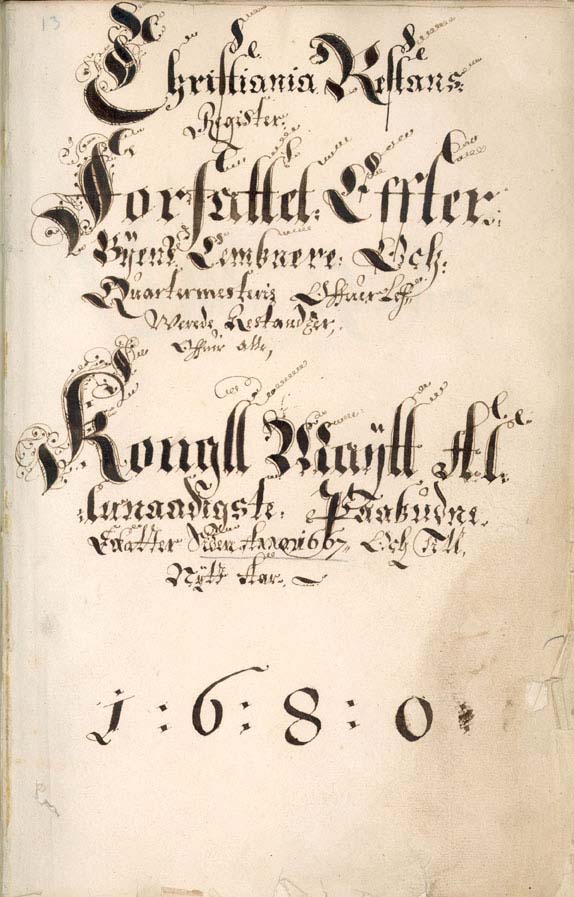 13
Christiania Restans
Register.
Forfattet: Effter
Byens Kembnere: Och:
Quartermesters Offuerlef
Werede Restandzer,
Offuer alle,
Kongll Maÿtt Al
lernaadigste: Paabudne
Skatter Siden Anno 1667, Och Till
Nÿtt Aar.
1:6:8:0